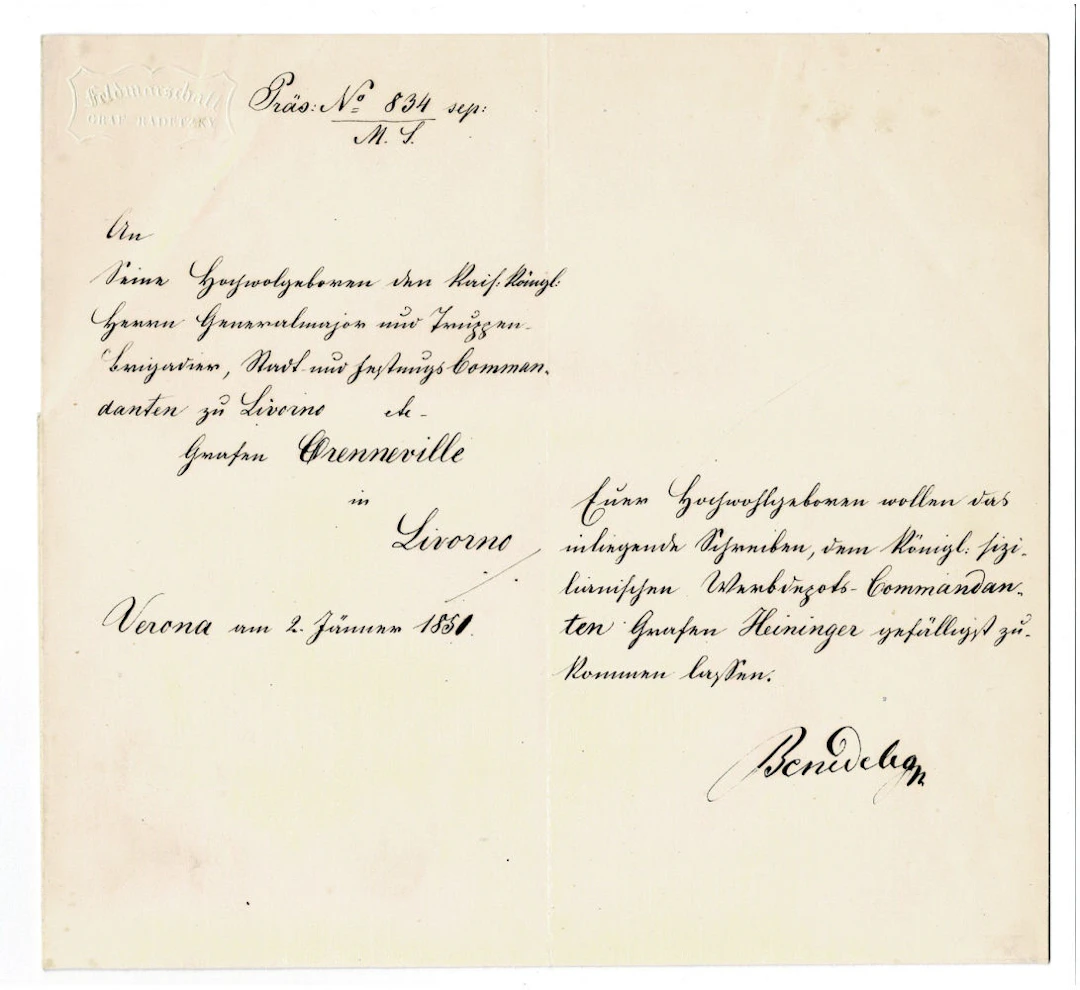 Feldmarschall
GRAF RADETZKY
Präs: No 834 sep:
M. S.
An
Seine Hochwolgeboren den Kais: Königl:
Herrn Generalmajor und Truppen-
Brigadier, Stadt- und Festungs Comman-
danten zu Livorno etc-
Grafen Crenneville
in
Livorno
Verona am 2. Jänner 1851.
Euer Hochwohlgeboren wollen das
inliegende Schreiben, dem Königl: sizi-
lianischen Werbdepots-Commandan-
ten Grafen Heininger gefälligst zu-
kommen lassen.
Benedek